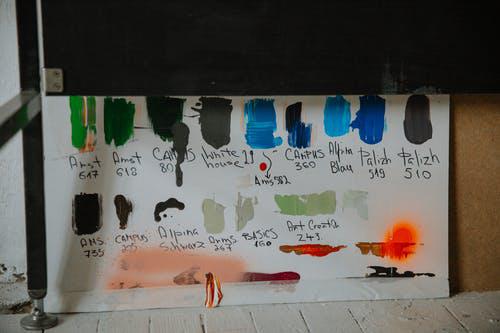 Amst
617
Amst
618
CAMPUS
80
White
house!!
CAMPUS
360
Alpina
Blau
Palizh
519
Palizh
510
Ams
735
CAMPUS
Alpina
Schwarz
Ams
267
BASICS
160
Art Creation
243